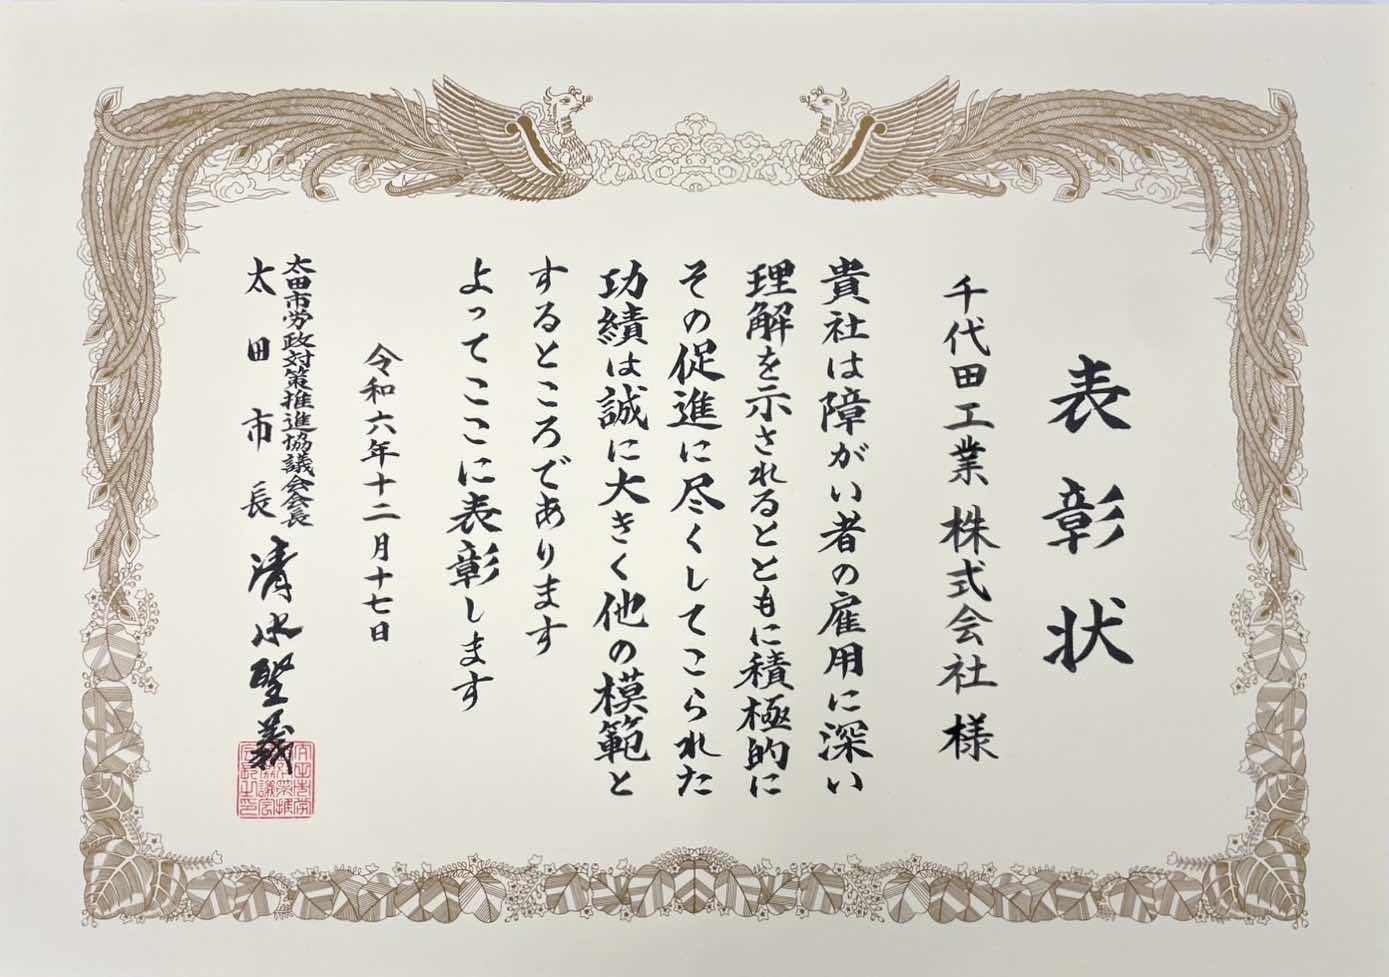 表彰状
千代田工業株式会社様
貴社は障がい者の雇用に深い
理解を示されるとともに積極的に
その促進に尽くしてこられた
功績は誠に大きく他の模範と
するところであります
よってここに表彰します
令和六年十二月十七日
太田市労政対策推進協議会会長
太田市長 清水聖義